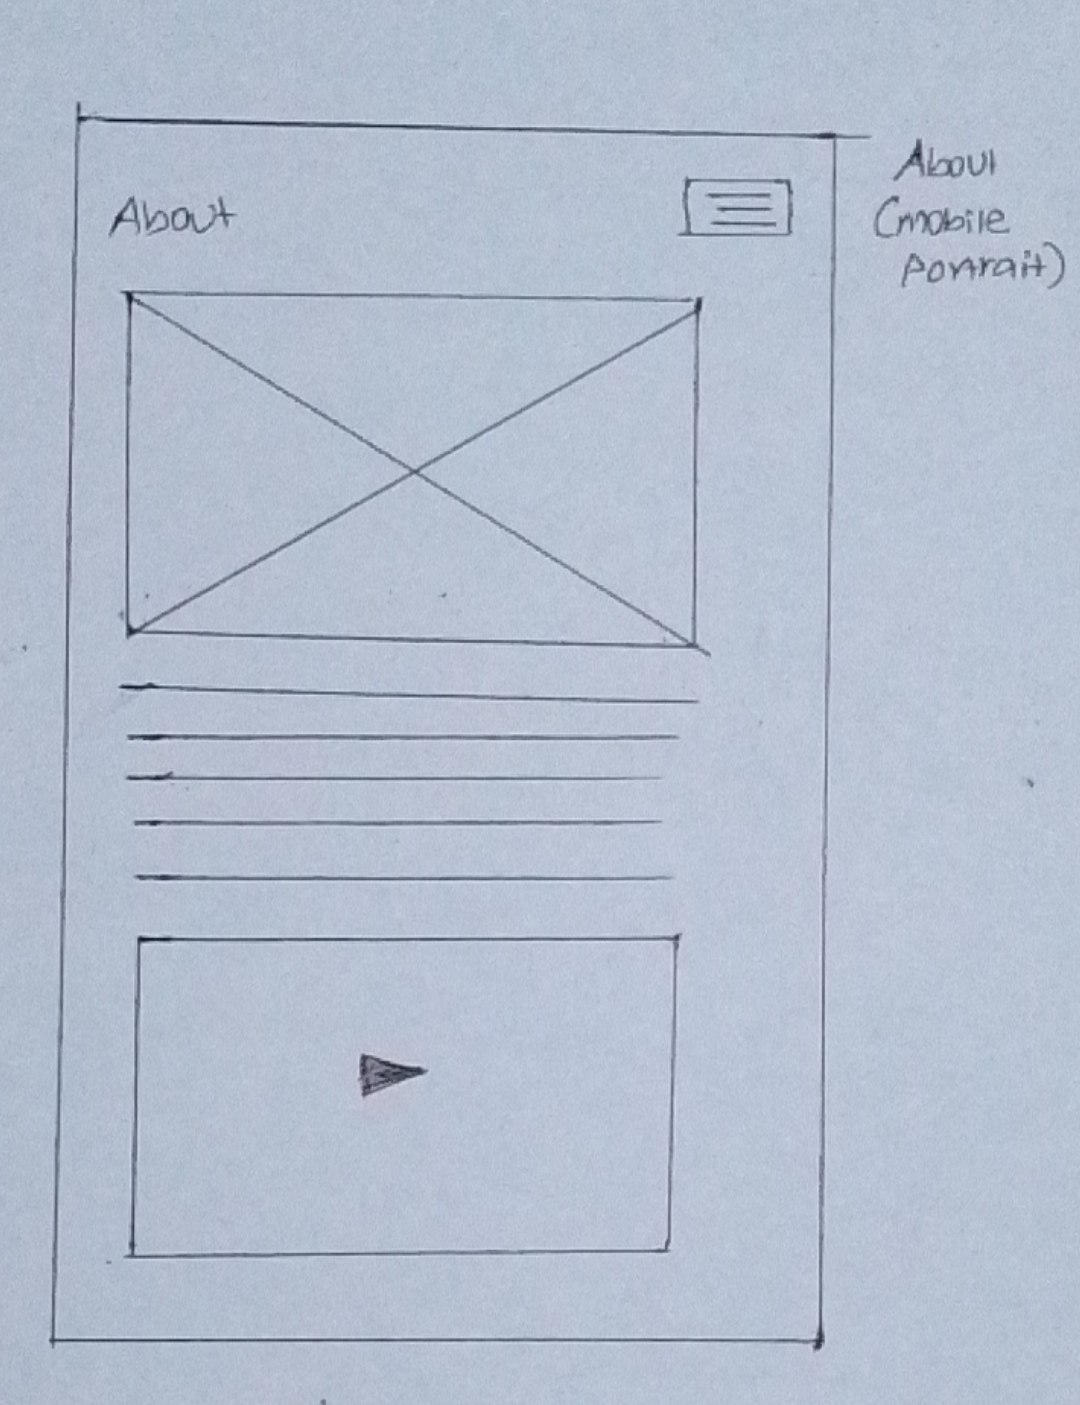 About
About
(mobile
portrait)